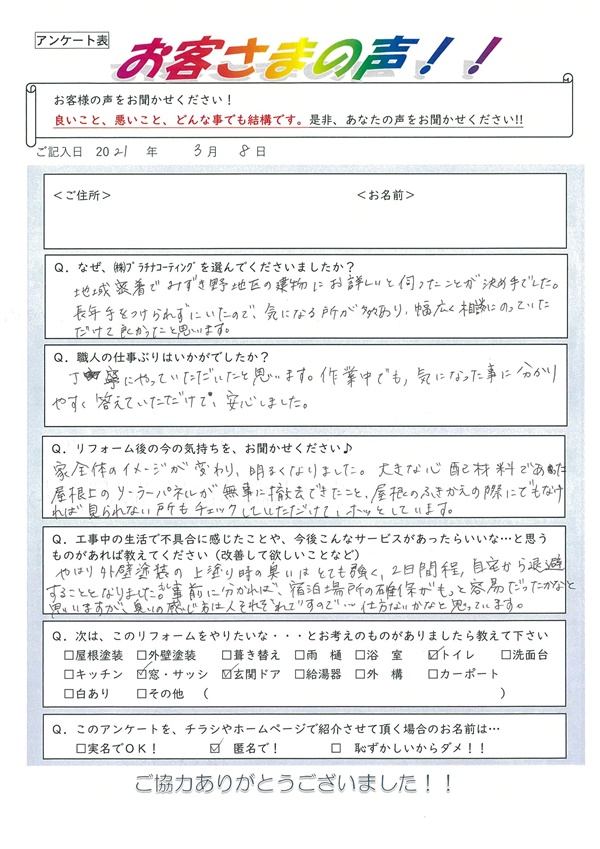 アンケート表
お客さまの声！！
お客様の声をお聞かせください！
良いこと、悪いこと、どんな事でも結構です。是非、あなたの声をお聞かせください!!
ご記入日 2021 年 3月 8日
＜ご住所＞ ＜お名前＞
Q．なぜ、㈱ﾌﾟﾗﾁﾅｺｰﾃｨﾝｸﾞを選んでくださいましたか？
地域密着でみずき野地区の建物にお詳しいと伺ったことが決め手でした。
長年手をつけられずにいたので、気になる所が多々あり、幅広く相談にのっていた
だけて良かったと思います。
Q．職人の仕事ぶりはいかがでしたか？
丁寧にやっていただいたと思います。作業中でも、気になった事に分かり
やすく答えていただけて、安心しました。
Q．リフォーム後の今の気持ちを、お聞かせください♪
家全体のイメージが変わり、明るくなりました。大きな心配材料であった
屋根上のソーラーパネルが無事に撤去できたこと、屋根のふきかえの際にでもなけ
れば見られない所もチェックしていただけて、ホッとしています。
Q．工事中の生活で不具合に感じたことや、今後こんなサービスがあったらいいな…と思う
ものがあれば教えてください（改善して欲しいことなど）
やはり外壁塗装の上塗り時の臭いはとても強く、2日間程、自宅から退避
することとなりました。事前に分かれば、宿泊場所の確保がもっと容易だったかなと
思いますが、臭いの感じ方は人それぞれですので… 仕方ないかなと思っています。
Q．次は、このリフォームをやりたいな・・・とお考えのものがありましたら教えて下さい
□屋根塗装 □外壁塗装 □葺き替え □雨 樋 □浴 室 ☑トイレ □洗面台
□キッチン ☑窓・サッシ ☑玄関ドア □給湯器 □外 構 □カーポート
□白あり □その他 （ ）
Q．このアンケートを、チラシやホームページで紹介させて頂く場合のお名前は…
□実名でＯＫ！ ☑ 匿名で！ □ 恥ずかしいからダメ！！
ご協力ありがとうございました！！